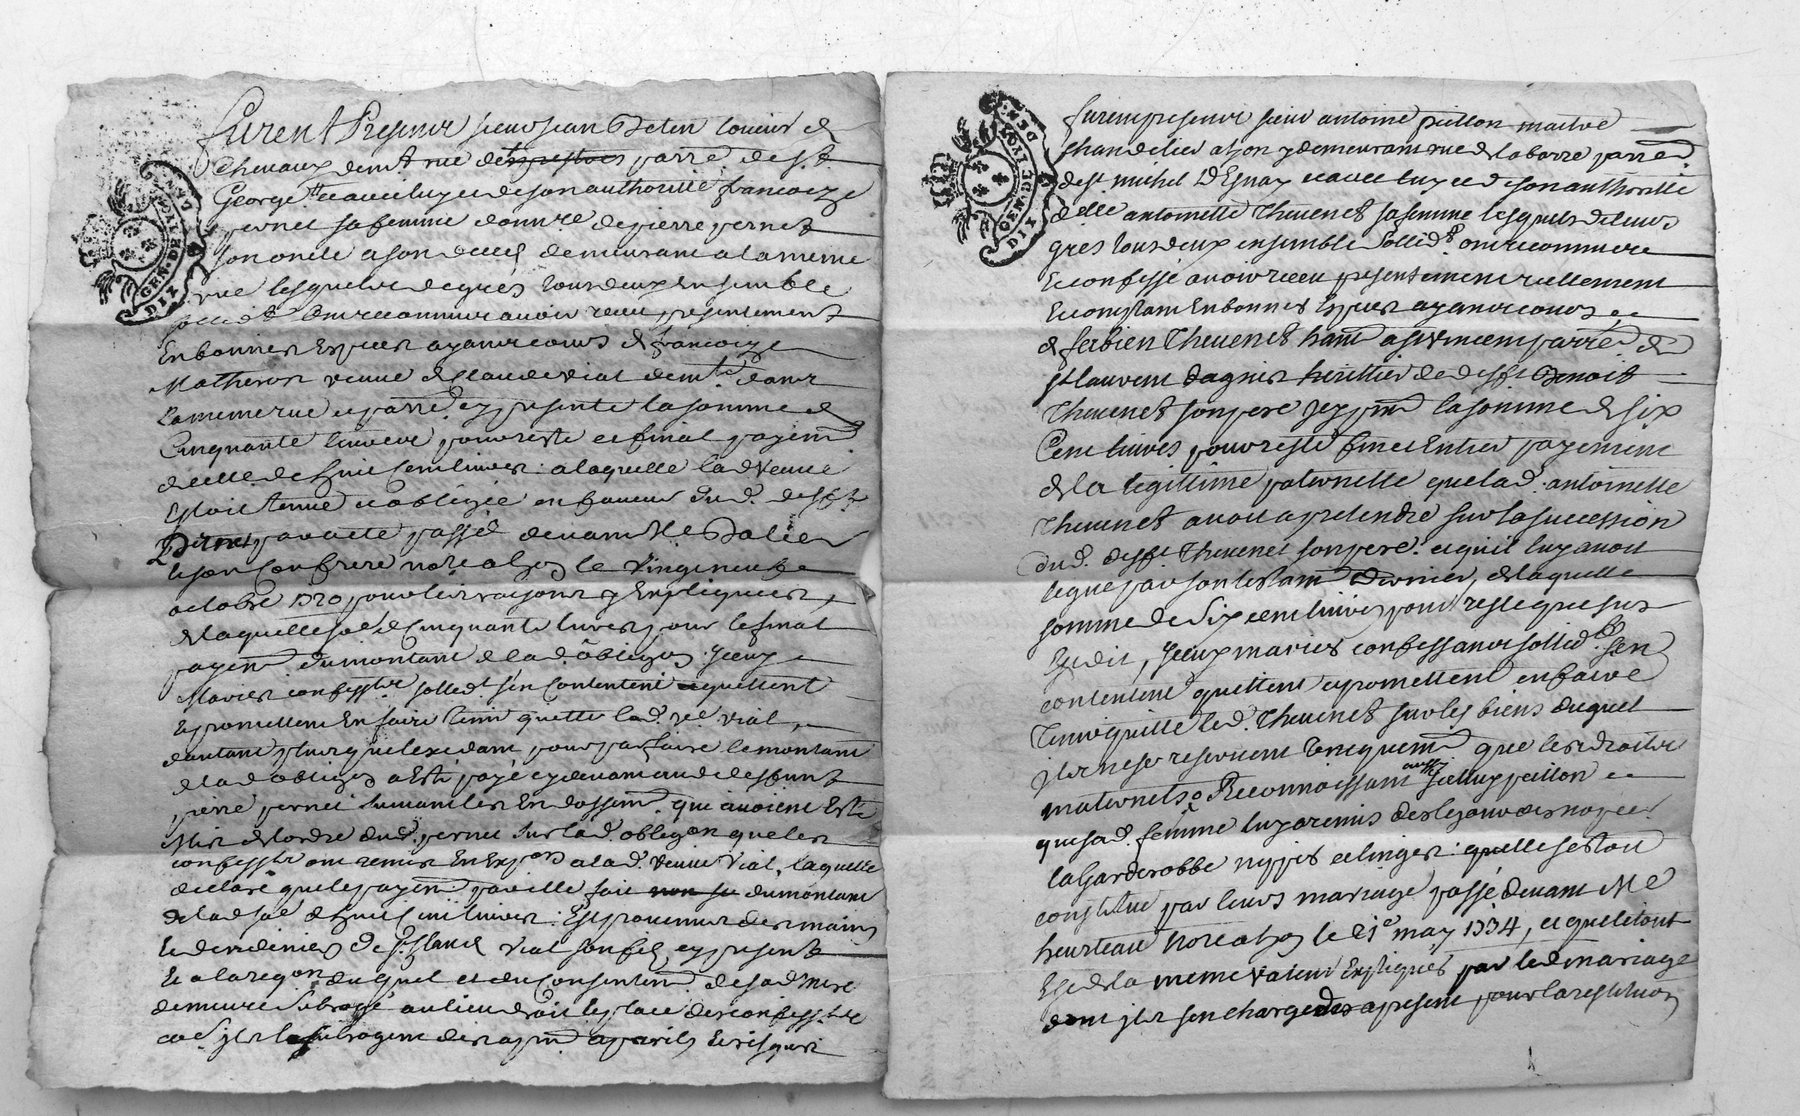 furent Presents sieur Jean Belin loueur de
Chevaux demt rue parre de St
George et avec luy et de son authorité françoize
pernet sa femme donnre de pierre pernet
son oncle a son deces demeurant a la meme
rue lesquels de gres tous deux ensemble
sollidt ont reconnu avoir receu presentement
En bonnes Especes ayant cours de françoize
Matheron veuve de Claude vial demte dans
la meme rue et parre cy presente la somme de
Cinquante livres pour reste et final payemt
de celle de huit cent livres a laquelle lad veuve
Estoit tenue et obligée en faveur dud. defft
pernet par acte passé devant Me Dalier
et son Confrere nore a lyon le vingt neufe
octobre 1720 pour les raisons y Expliquées,
de laquelle soe de Cinquante livres pour le final
payemt du montant de lad. obligaon. yceux
Maries confesstz sollidt s'en Contentent quittent
Et promettent En faire tenir quitte lad. ve vial,
d'autant plus que l'exedant pour parfaire le montant
de lad obligaon a Esté payé cy devant aud deffunt
pierre pernet suivant les Endossemt que avoient Esté
Mis de l'ordre dud. pernet sur lad obligaon que les
confesstz ont remis En Expon a lad. veuve vial, laquelle
declare que le payemt par elle fait du montant
de lad soe de huit cent livres Est provenus des mains
Et deniers de Sr Claude vial son fils cy present
Et a la reqon duquel et du Consentemt de sad mere
demeure subrogé au lieu droit et place des confesstz
ils le subrogent des a pnt a perils Et risques
GEN. DE LYON
DIX DEN.
furent presents sieur antoine peillon maitre
Chandelier a lyon y demeurant rue de la barre parre
de St michel D'Esnay et avec luy et de son authorité
delle antoinette Thevenet sa femme lesquels de leurs
gres tous deux ensemble sollidt ont reconnu
Et confessé avoir receu presentement reellement
Et comptant En bonnes Especes ayant cours
de ferbien Thevenet hant a St vincent parre de
St laurent d'agnis heritier de defft Benoit
Thevenet son pere cy pnt la somme de six
Cent livres pour reste fin et Entier payement
de la legittime paternelle que lad. antoinette
Thevenet avoit a pretendre sur la succession
dud. defft Thevenet son pere. et qu'il luy avoit
legué par son testamt dernier, de laquelle
somme de six cent livres pour reste que sus
Est dit, yceux maries confessants sollidt s'en
contentent quittent et promettent en faire
tenir quitte led. Thevenet sur les biens duquel
ils ne se reservent uniquemt que les droits
maternels. Reconnoissant aussy sieur peillon
que sad. femme luy a remis des le jour des noces
la Garderobbe nippes et linges qu'elle s'estoit
constitué par leurs mariage passé devant Me
heurteau Nore a lyon le 21e may 1734, et que le tout
Est de la meme valeur Expliqués par led mariage
dont il s'en charge des a present pour la restitution
GEN. DE LYON
DIX DEN.